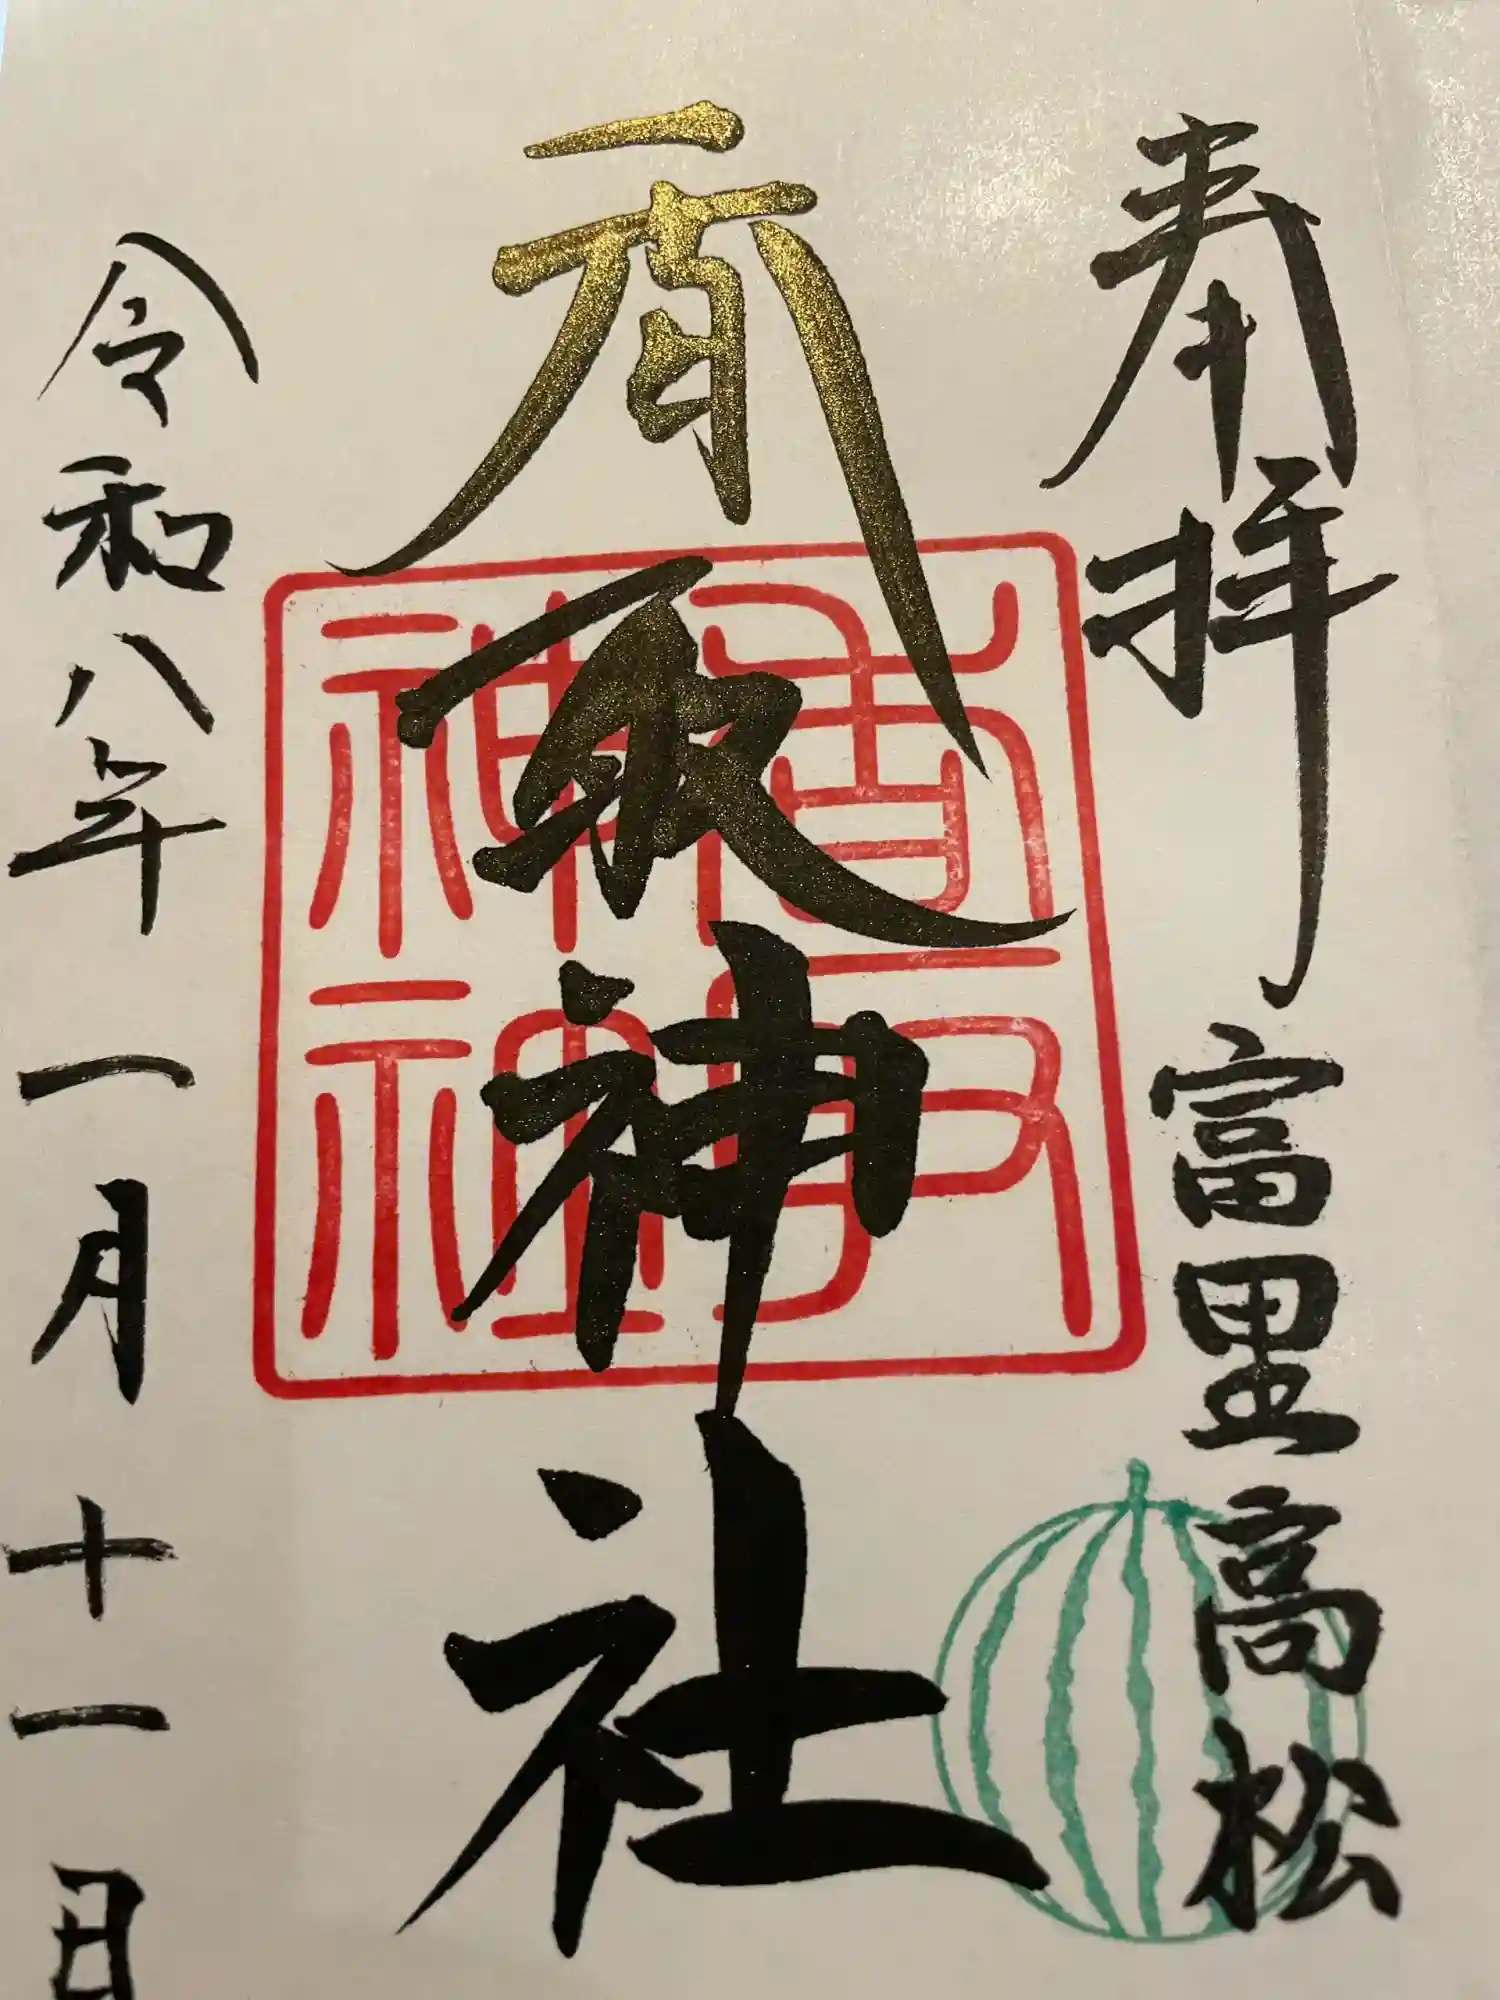 奉拝 富里高松
香取神社
香取神社
令和八年一月十一日